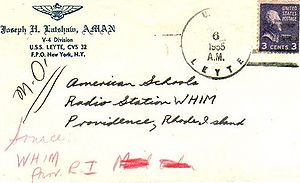 Joseph H. Latshaw, AMAN
V-4 Division
U.S.S. LEYTE, CVS 32
F.P.O. New York, N.Y.
U.
6
1955
A.M.
LEYTE
UNITED STATES
POSTAGE
3 CENTS 3
M.O.
American Schools
Radio Station WHIM
Providence, Rhode Island
Source
WHIM
Prov. R I